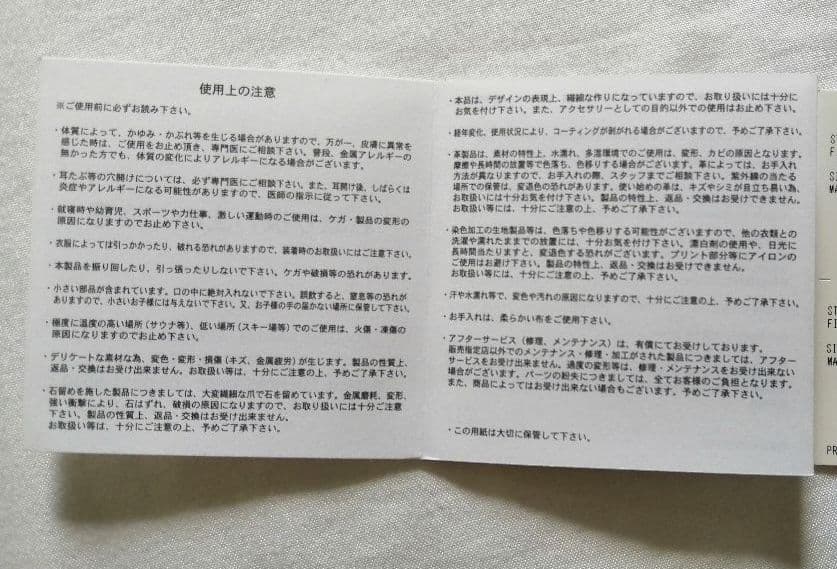 使用上の注意
※ご使用前に必ずお読み下さい。
・体質によって、かゆみ・かぶれ等を生じる場合がありますので、万が一、皮膚に異常を
感じた時は、ご使用をお止め頂き、専門医にご相談下さい。普段、金属アレルギーの
無かった方でも、体質の変化によりアレルギーになる場合がございます。
・耳たぶ等の穴開けについては、必ず専門医にご相談下さい。また、耳開け後、しばらくは
炎症やアレルギーになる可能性がありますので、医師の指示に従って下さい。
・就寝時や幼育児、スポーツや力仕事、激しい運動時のご使用は、ケガ・製品の変形の
原因になりますのでお止め下さい。
・衣服によっては引っかかったり、破れる恐れがありますので、装着時のお取扱いにはご注意下さい。
・本製品を振り回したり、引っ張ったりしないで下さい。ケガや破損等の恐れがあります。
・小さい部品が含まれています。口の中に絶対入れないで下さい。誤飲すると、窒息等の恐れが
ありますので、小さいお子様には与えないで下さい。又、お子様の手の届かない場所に保管して下さい。
・極度に温度の高い場所（サウナ等）、低い場所（スキー場等）でのご使用は、火傷・凍傷の
原因になりますのでお止め下さい。
・デリケートな素材な為、変色・変形・損傷（キズ、金属疲労）が生じます。製品の性質上、
返品・交換はお受け出来ません。お取扱い等は、十分にご注意の上、予めご了承下さい。
・石留めを施した製品につきましては、大変繊細な爪で石を留めています。金属磨耗、変形、
強い衝撃により、石はずれ、破損の原因になりますので、お取り扱いには十分ご注意
下さい。製品の性質上、返品・交換はお受け出来ません。
お取扱い等は、十分にご注意の上、予めご了承下さい。
・本品は、デザインの表現上、繊細な作りになっていますので、お取り扱いには十分に
お気を付け下さい。また、アクセサリーとしての目的以外での使用はお止め下さい。
・経年変化、使用状況により、コーティングが剥がれる場合がございますので、予めご了承下さい。
・革製品は、素材の特性上、水濡れ、多湿環境でのご使用は、変形、カビの原因となります。
摩擦や長時間の放置等で色落ち、色移りする場合がございます。革によっては、お手入れ
方法が異なりますので、お手入れの際、スタッフまでご相談下さい。紫外線の当たる
場所での保管は、変退色の恐れがあります。使い始めの革は、キズやシミが目立ち易い為、
お取扱いには十分お気を付け下さい。製品の特性上、返品・交換はお受けできません。
お取扱い等には、十分にご注意の上、予めご了承下さい。
・染色加工の生地製品等は、色落ちや色移りする可能性がございますので、他の衣類との
洗濯や濡れたままでの放置には、十分お気を付け下さい。漂白剤の使用や、日光に
長時間当たりますと、変退色する恐れがございます。プリント部分等にアイロンの
ご使用はお避け下さい。製品の特性上、返品・交換はお受けできません。
お取扱い等には、十分にご注意の上、予めご了承下さい。
・汗や水濡れ等で、変色や汚れの原因になりますので、十分にご注意の上、予めご了承下さい。
・お手入れは、柔らかい布をご使用下さい。
・アフターサービス（修理、メンテナンス）は、有償にてお受けしております。
販売指定店以外でのメンテナンス・修理・加工がされた製品につきましては、アフター
サービスをお受け出来ません。過度の変形等は、修理・メンテナンスをお受け出来ない
場合がございます。パーツの紛失につきましては、全てお客様のご負担となります。
また、商品によってはお受け出来ない場合もございます。予めご了承下さい。
・この用紙は大切に保管して下さい。